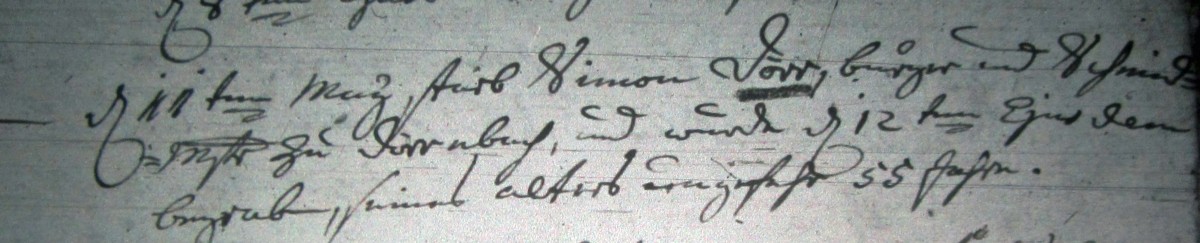 d 8 tem
d 11 tem May starb Simon Dörr, burger und Schmid=
=Mstr zu Dörrenbach, und wurde d 12 tem Ejusdem
begrab, seines alters ungefehr 55 Jahr.